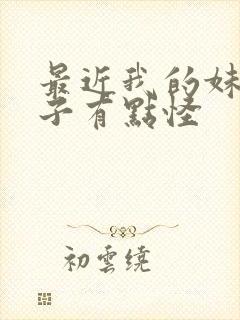 最近我的妹
子有點怪
初雲繞